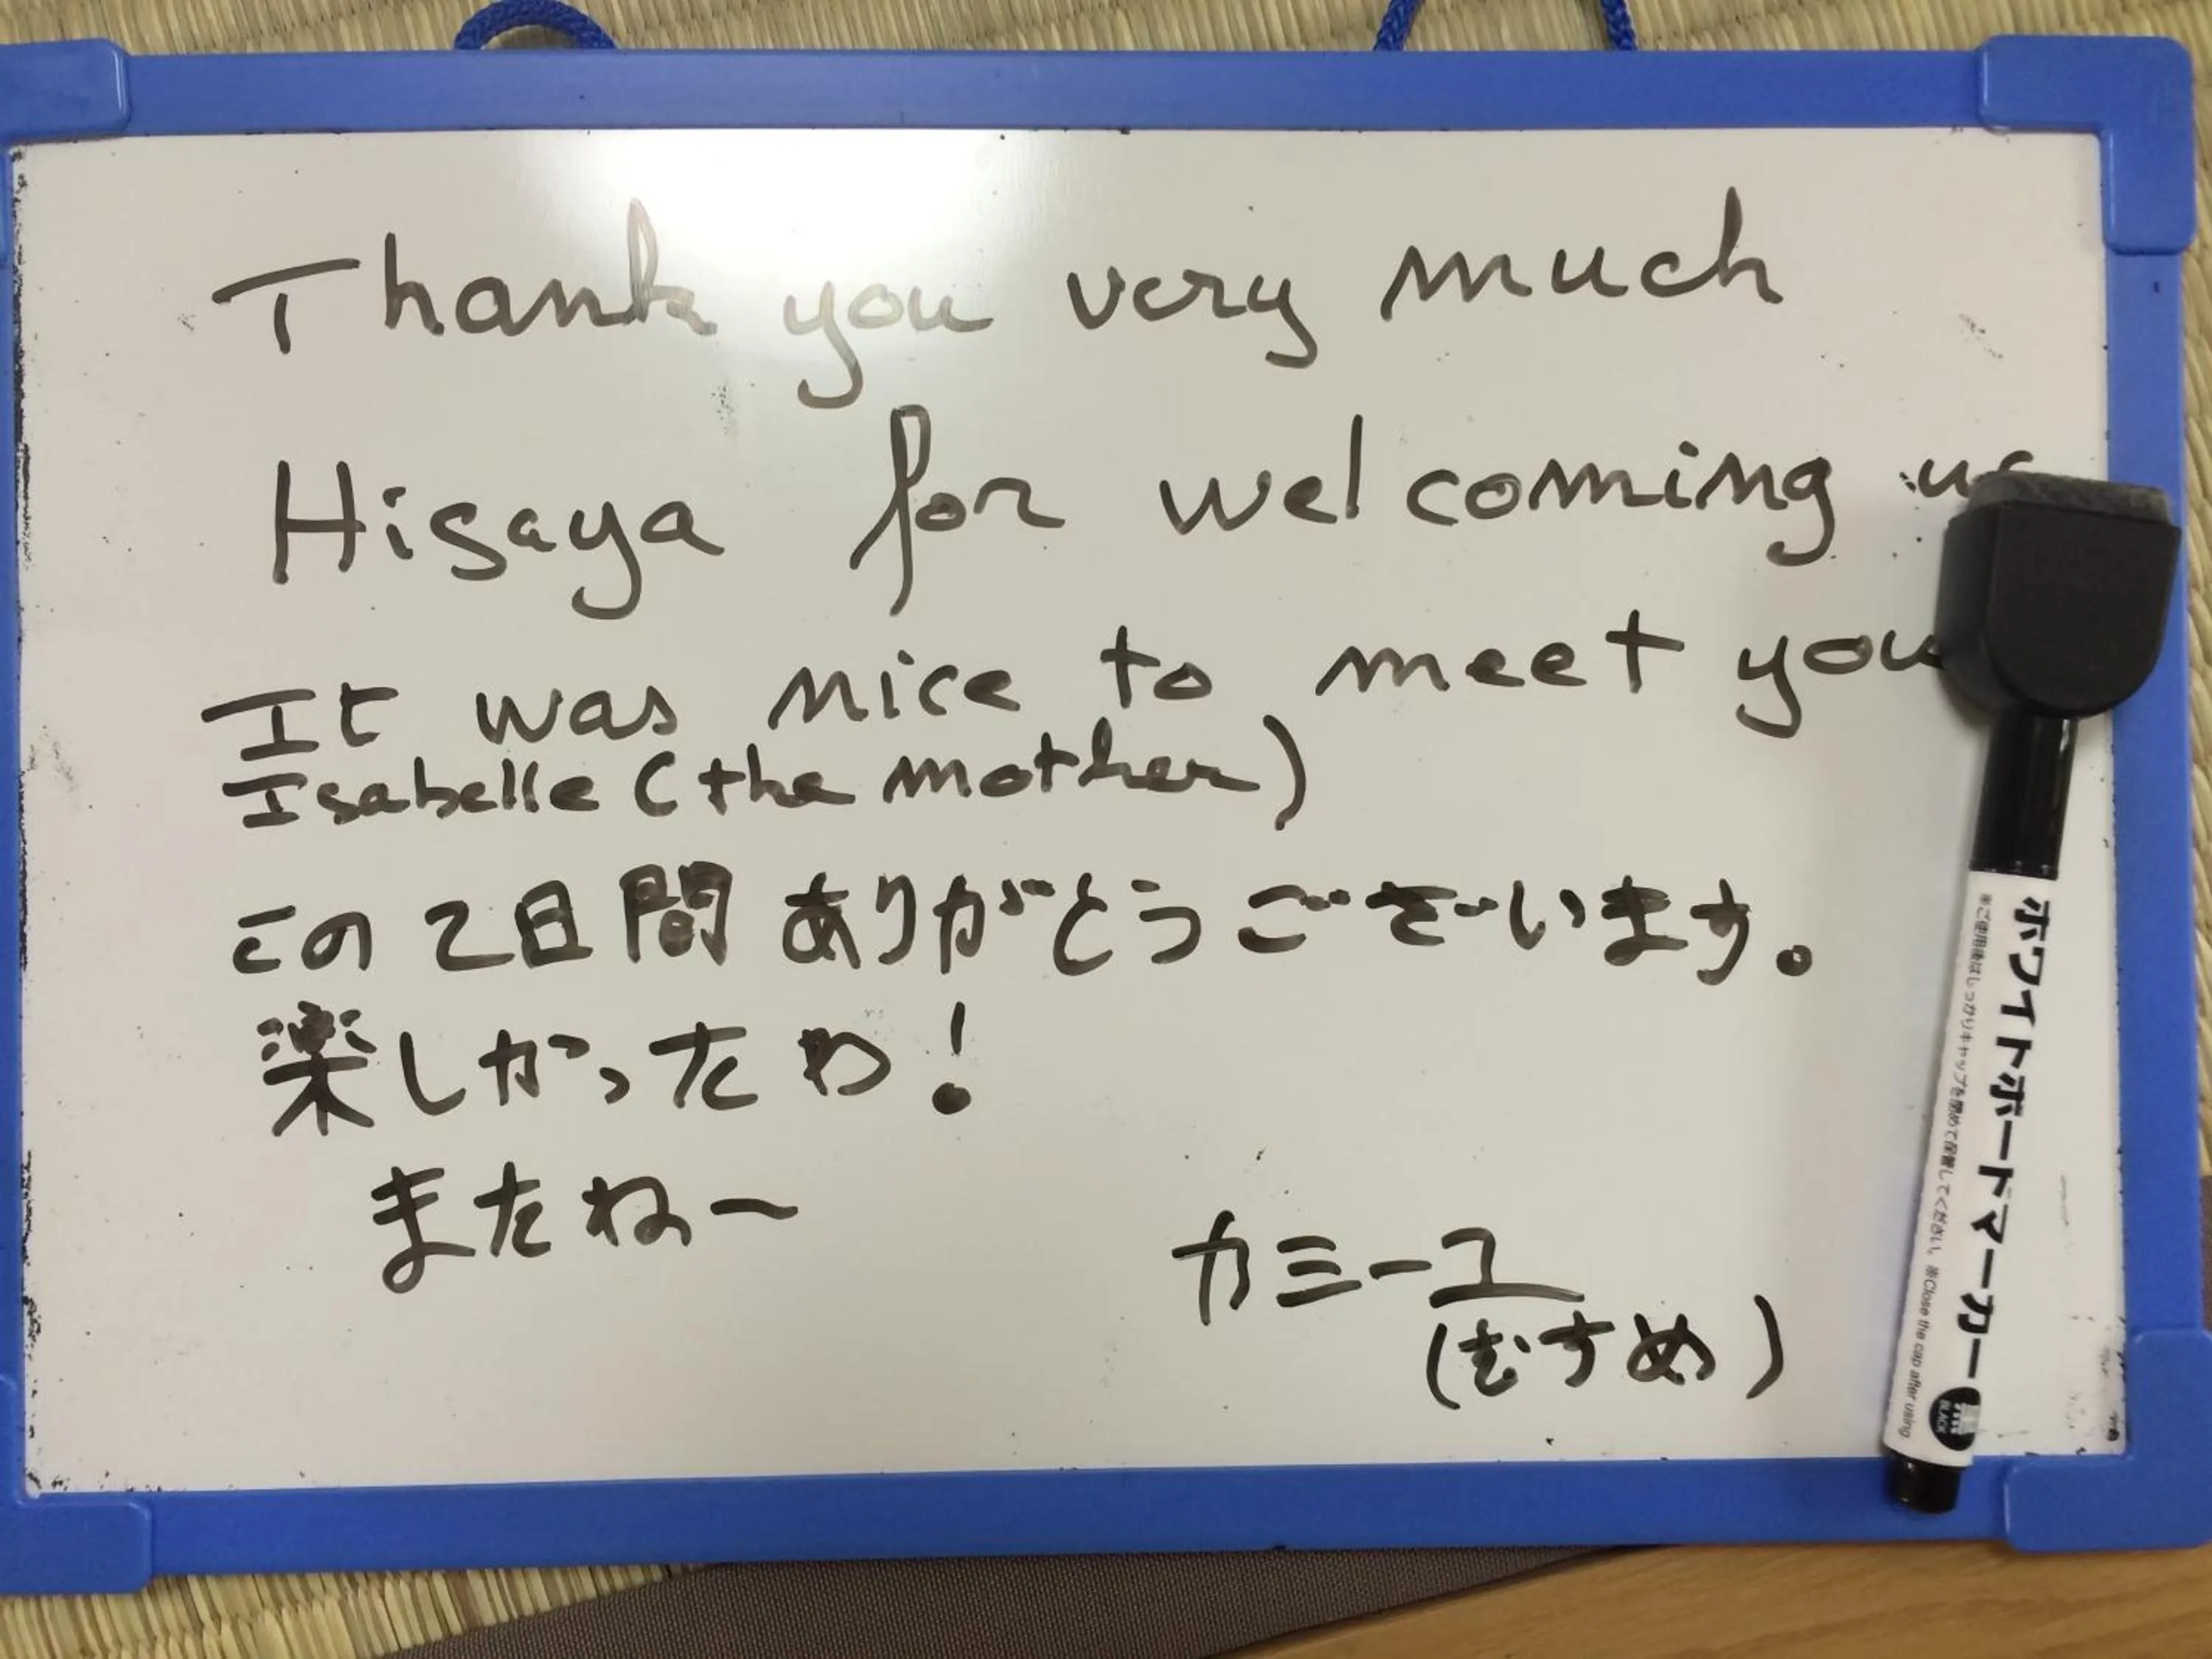 Thank you very much
Hisaya for welcoming us
It was nice to meet you
Isabelle (the mother)
この2日間ありがとうございます。
楽しかったわ!
またねー
カミーユ
(むすめ)
ホワイトボードマーカー
※ご使用後はしっかりキャップを閉めて保管してください。※Close the cap after using.
BLACK